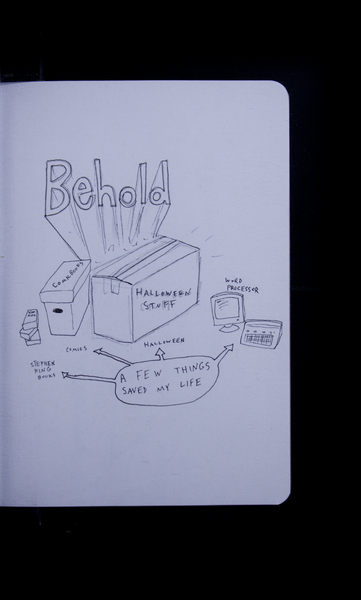 Behold
COMIC BOOKS
HALLOWEEN
STUFF
WORD
PROCESSOR
COMICS
HALLOWEEN
STEPHEN
KING
BOOKS
A FEW THINGS
SAVED MY LIFE